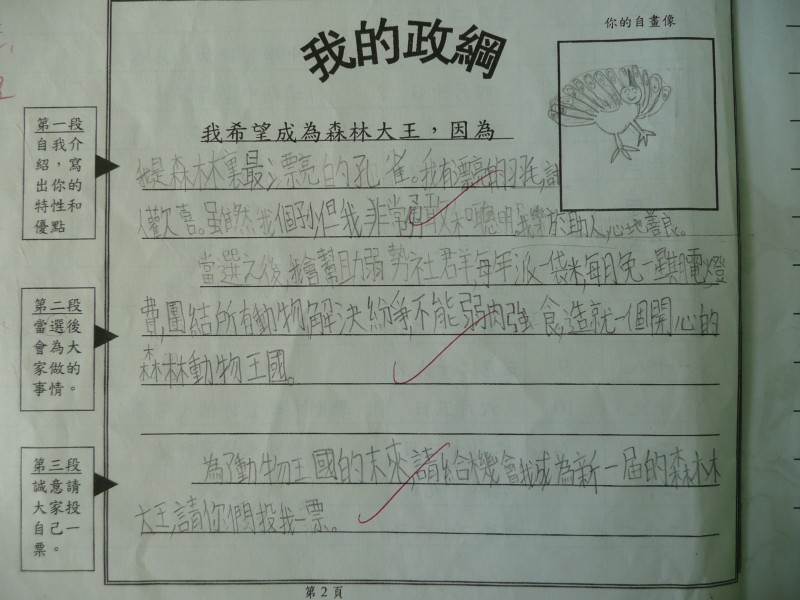 你的自畫像
我的政綱
我希望成為森林大王，因為
我是森林裏最漂亮的孔雀。我有漂亮的羽毛,討
人歡喜。雖然我個子小但我非常勇敢和聰明,我樂於助人,心地善良。
當選之後,我會幫助弱勢社群每年派一袋米,每月免一星期電燈
費,團結所有動物,解決紛爭,不能弱肉強食,造就一個開心的
森林動物王國。
為了動物王國的未來,請給機會我成為新一屆的森林
大王,請你們投我一票。
第一段
自我介
紹，寫
出你的
特性和
優點
第二段
當選後
會為大
家做的
事情。
第三段
誠意請
大家投
自己一
票。
第2頁